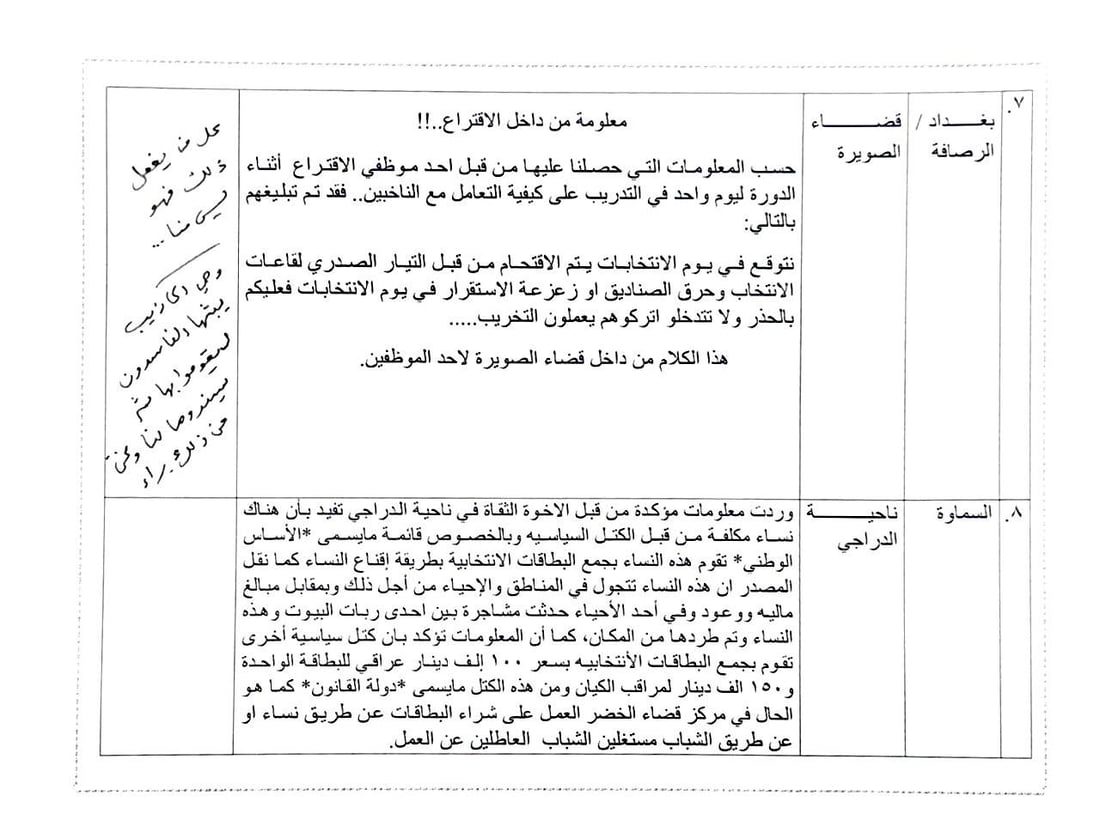 ٧.
بغـــداد /
الرصافة
قضـــــــاء
الصويرة
معلومة من داخل الاقتراع..!!
حسب المعلومات التي حصلنا عليها من قبل احد موظفي الاقتراع أثناء
الدورة ليوم واحد في التدريب على كيفية التعامل مع الناخبين.. فقد تم تبليغهم
بالتالي:
نتوقع في يوم الانتخابات يتم الاقتحام من قبل التيار الصدري لقاعات
الانتخاب وحرق الصناديق او زعزعة الاستقرار في يوم الانتخابات فعليكم
بالحذر ولا تتدخلو اتركوهم يعملون التخريب.....
هذا الكلام من داخل قضاء الصويرة لاحد الموظفين.
من يفعل
ذلك فهو
ليس منا ...
وهي اكاذيب
يبثها الفاسدون
ليقوموا بها ثم
سيسندوها لنا ونحن
من ذلك براء
٨.
السماوة
ناحيـــــــــة
الدراجي
وردت معلومات مؤكدة من قبل الاخوة الثقاة في ناحية الدراجي تفيد بأن هناك
نساء مكلفة من قبل الكتل السياسيه وبالخصوص قائمة مايسمى *الأساس
الوطني* تقوم هذه النساء بجمع البطاقات الانتخابية بطريقة إقناع النساء كما نقل
المصدر ان هذه النساء تتجول في المناطق والإحياء من أجل ذلك وبمقابل مبالغ
ماليه ووعود وفي أحد الأحياء حدثت مشاجرة بين احدى ربات البيوت وهذه
النساء وتم طردها من المكان، كما أن المعلومات تؤكد بان كتل سياسية أخرى
تقوم بجمع البطاقات الأنتخابيه بسعر ١٠٠ إلف دينار عراقي للبطاقة الواحدة
و١٥٠ الف دينار لمراقب الكيان ومن هذه الكتل مايسمى *دولة القانون* كما هو
الحال في مركز قضاء الخضر العمل على شراء البطاقات عن طريق نساء او
عن طريق الشباب مستغلين الشباب العاطلين عن العمل.